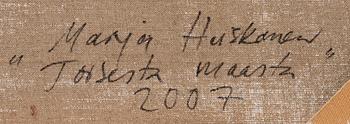 Marja Huskonen
"Toisesta maasta"
2007